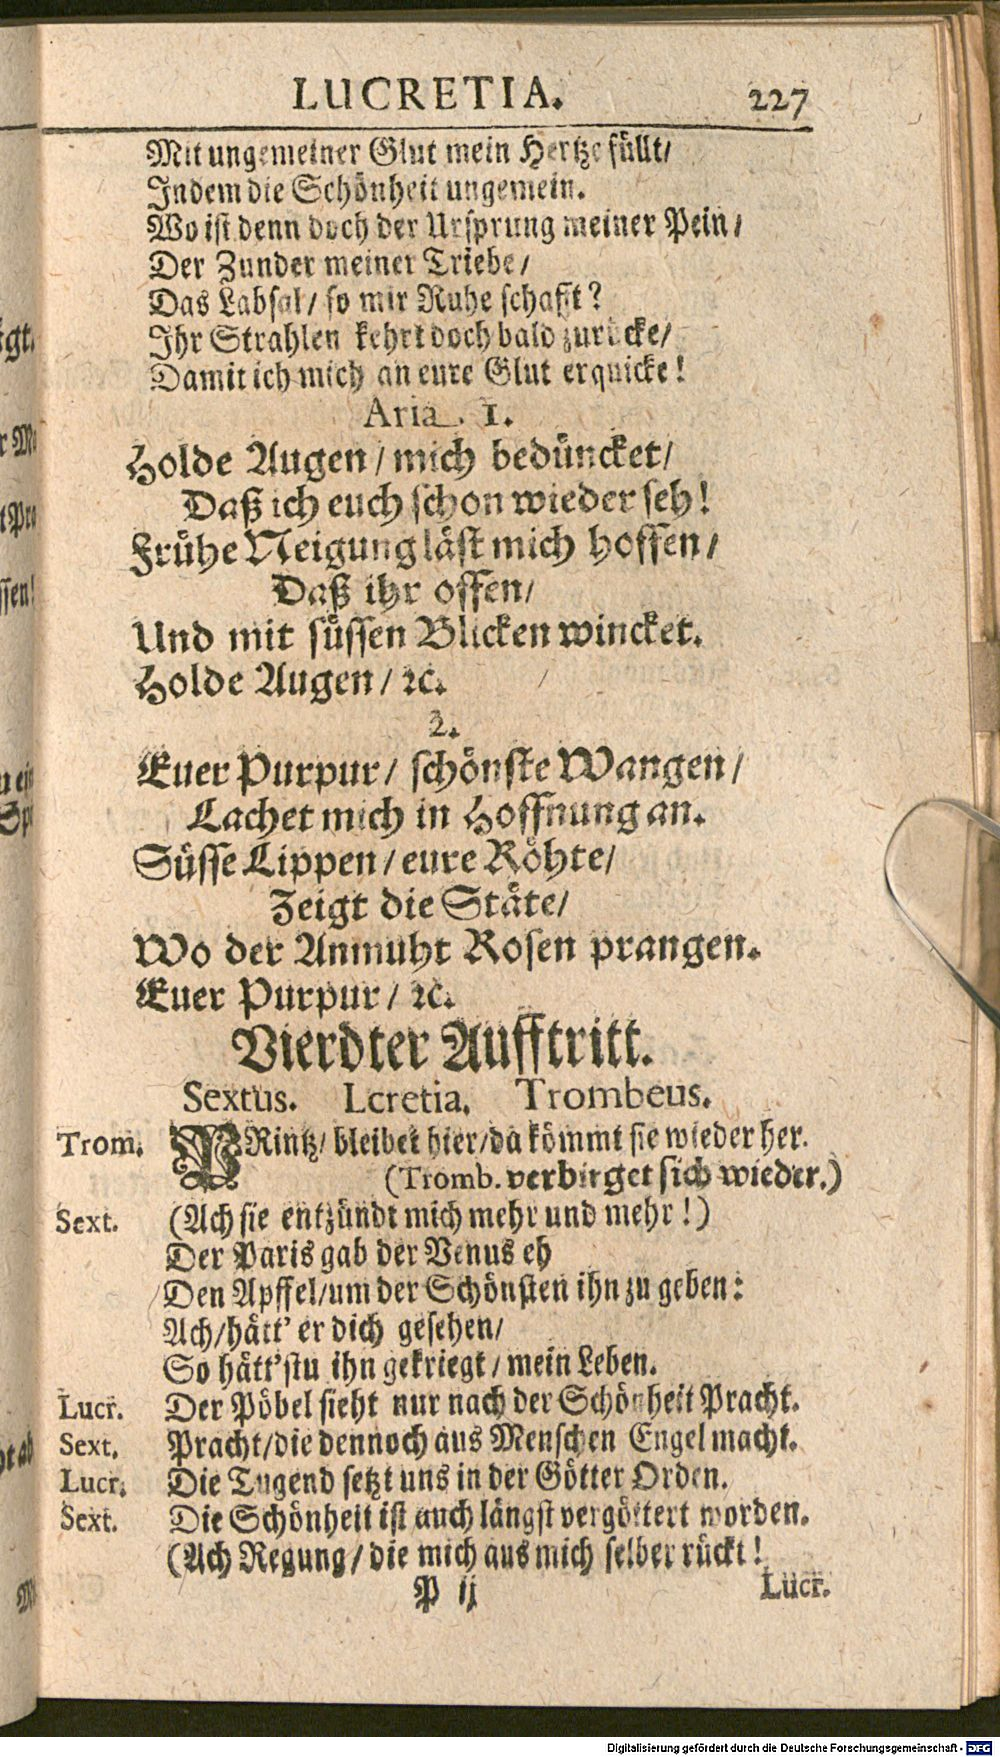 LUCRETIA. 227
Mit ungemeiner Glut mein Hertze füllt/
Indem die Schönheit ungemein.
Wo ist denn doch der Ursprung meiner Pein/
Der Zunder meiner Triebe/
Das Labsal/ so mir Ruhe schafft?
Ihr Strahlen kehrt doch bald zurücke/
Damit ich mich an eure Glut erquicke!
Aria. 1.
Holde Augen/ mich bedüncket/
Daß ich euch schon wieder seh!
Frühe Neigung läst mich hoffen/
Daß ihr offen/
Und mit süssen Blicken wincket.
Holde Augen/ ꝛc.
2.
Euer Purpur/ schönste Wangen/
Lachet mich in Hoffnung an.
Süsse Lippen/ eure Röhte/
Zeigt die Stäte/
Wo der Anmuht Rosen prangen.
Euer Purpur/ ꝛc.
Vierdter Aufftritt.
Sextus. Lcretia. Trombeus.
Trom. PRintz/ bleibet hier/ da kömmt sie wieder her.
(Tromb. verbirget sich wieder.)
Sext. (Ach sie entzündt mich mehr und mehr!)
Der Paris gab der Venus eh
Den Apffel/ um der Schönsten ihn zu geben:
Ach/ hätt' er dich gesehen/
So hätt'stu ihn gekriegt/ mein Leben.
Lucr. Der Pöbel sieht nur nach der Schönheit Pracht.
Sext. Pracht/ die dennoch aus Menschen Engel macht.
Lucr. Die Tugend setzt uns in der Götter Orden.
Sext. Die Schönheit ist auch längst vergöttert worden.
(Ach Regung/ die mich aus mich selber rückt!
P ij Lucr.
Digitalisierung gefördert durch die Deutsche Forschungsgemeinschaft - DFG